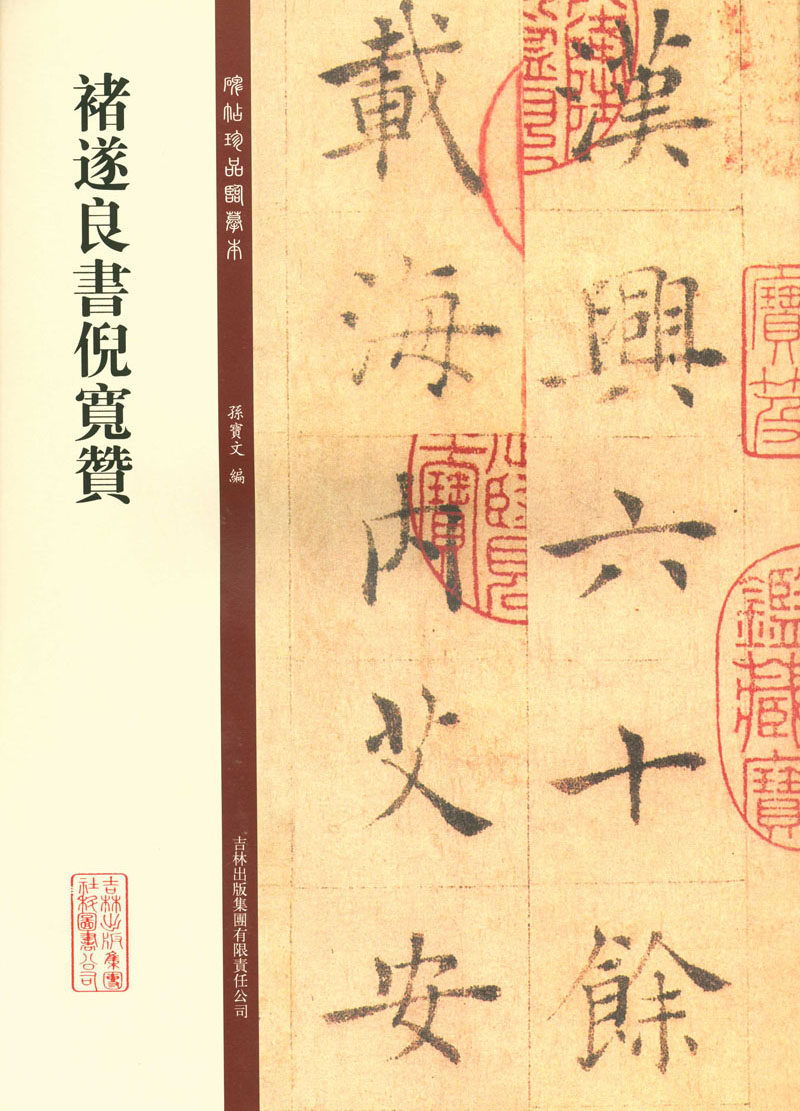 褚遂良書倪寬贊
碑帖珍品臨摹本
孫寶文 編
吉林出版集團有限責任公司
吉林出版集團
社科圖書公司
漢興六十餘
載海內艾安
寶笈
鑑藏寶